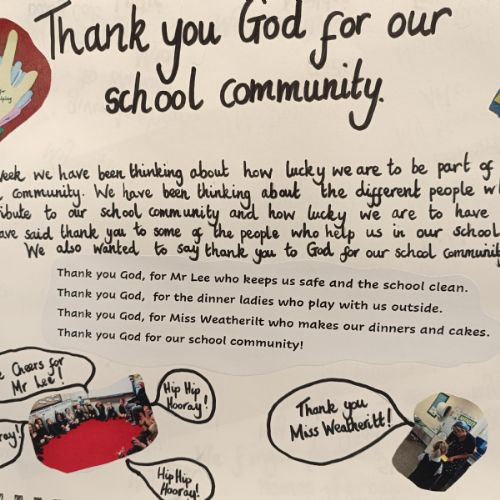 Thank you God for our
school community.
week we have been thinking about how lucky we are to be part of
community. We have been thinking about the different people w
ibute to our school community and how lucky we are to have
ave said thank you to some of the people who help us in our school
We also wanted to say thank you to God for our school communit
Thank you God, for Mr Lee who keeps us safe and the school clean.
Thank you God, for the dinner ladies who play with us outside.
Thank you God, for Miss Weatherilt who makes our dinners and cakes.
Thank you God for our school community!
Cheers for
Mr Lee!
Hip Hip
Hooray!
ray!
Hip Hip
Hooray!
Thank you
Miss Weatheritt!